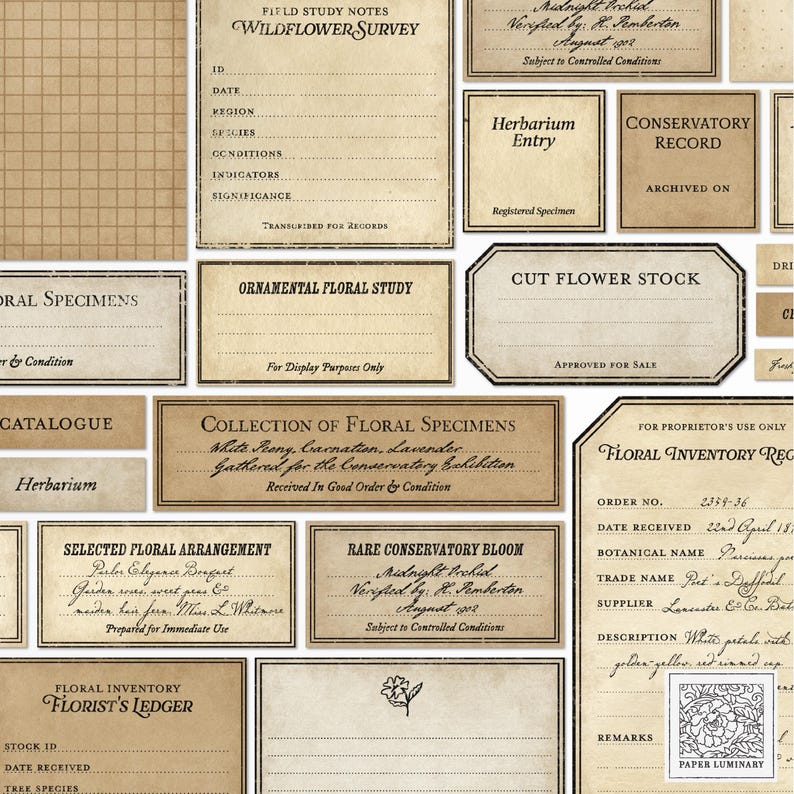 FIELD STUDY NOTES
WILDFLOWER SURVEY
ID
DATE
REGION
SPECIES
CONDITIONS
INDICATORS
SIGNIFICANCE
TRANSCRIBED FOR RECORDS
Midnight Orchid
Verified by: H. Pemberton
August 1902
Subject to Controlled Conditions
Herbarium
Entry
Registered Specimen
CONSERVATORY
RECORD
ARCHIVED ON
ORAL SPECIMENS
er & Condition
ORNAMENTAL FLORAL STUDY
For Display Purposes Only
CUT FLOWER STOCK
APPROVED FOR SALE
DRI
CATALOGUE
Herbarium
COLLECTION OF FLORAL SPECIMENS
White Peony, Carnation, Lavender
Gathered for the Conservatory Exhibition
Received In Good Order & Condition
SELECTED FLORAL ARRANGEMENT
Parlor Elegance Bouquet
Garden roses, sweet peas &
maiden hair fern, Miss. L. Whitmore
Prepared for Immediate Use
RARE CONSERVATORY BLOOM
Midnight Orchid
Verified by: H. Pemberton
August 1902
Subject to Controlled Conditions
FOR PROPRIETOR'S USE ONLY
FLORAL INVENTORY REC
ORDER NO. 2359-36
DATE RECEIVED 22nd April 18
BOTANICAL NAME Narcissus poe
TRADE NAME Poet's Daffodil
SUPPLIER Lancaster & Co. Bot
DESCRIPTION White petals with
golden-yellow, red-rimmed cup
REMARKS
FLORAL INVENTORY
FLORIST'S LEDGER
STOCK ID
DATE RECEIVED
TREE SPECIES
PAPER LUMINARY